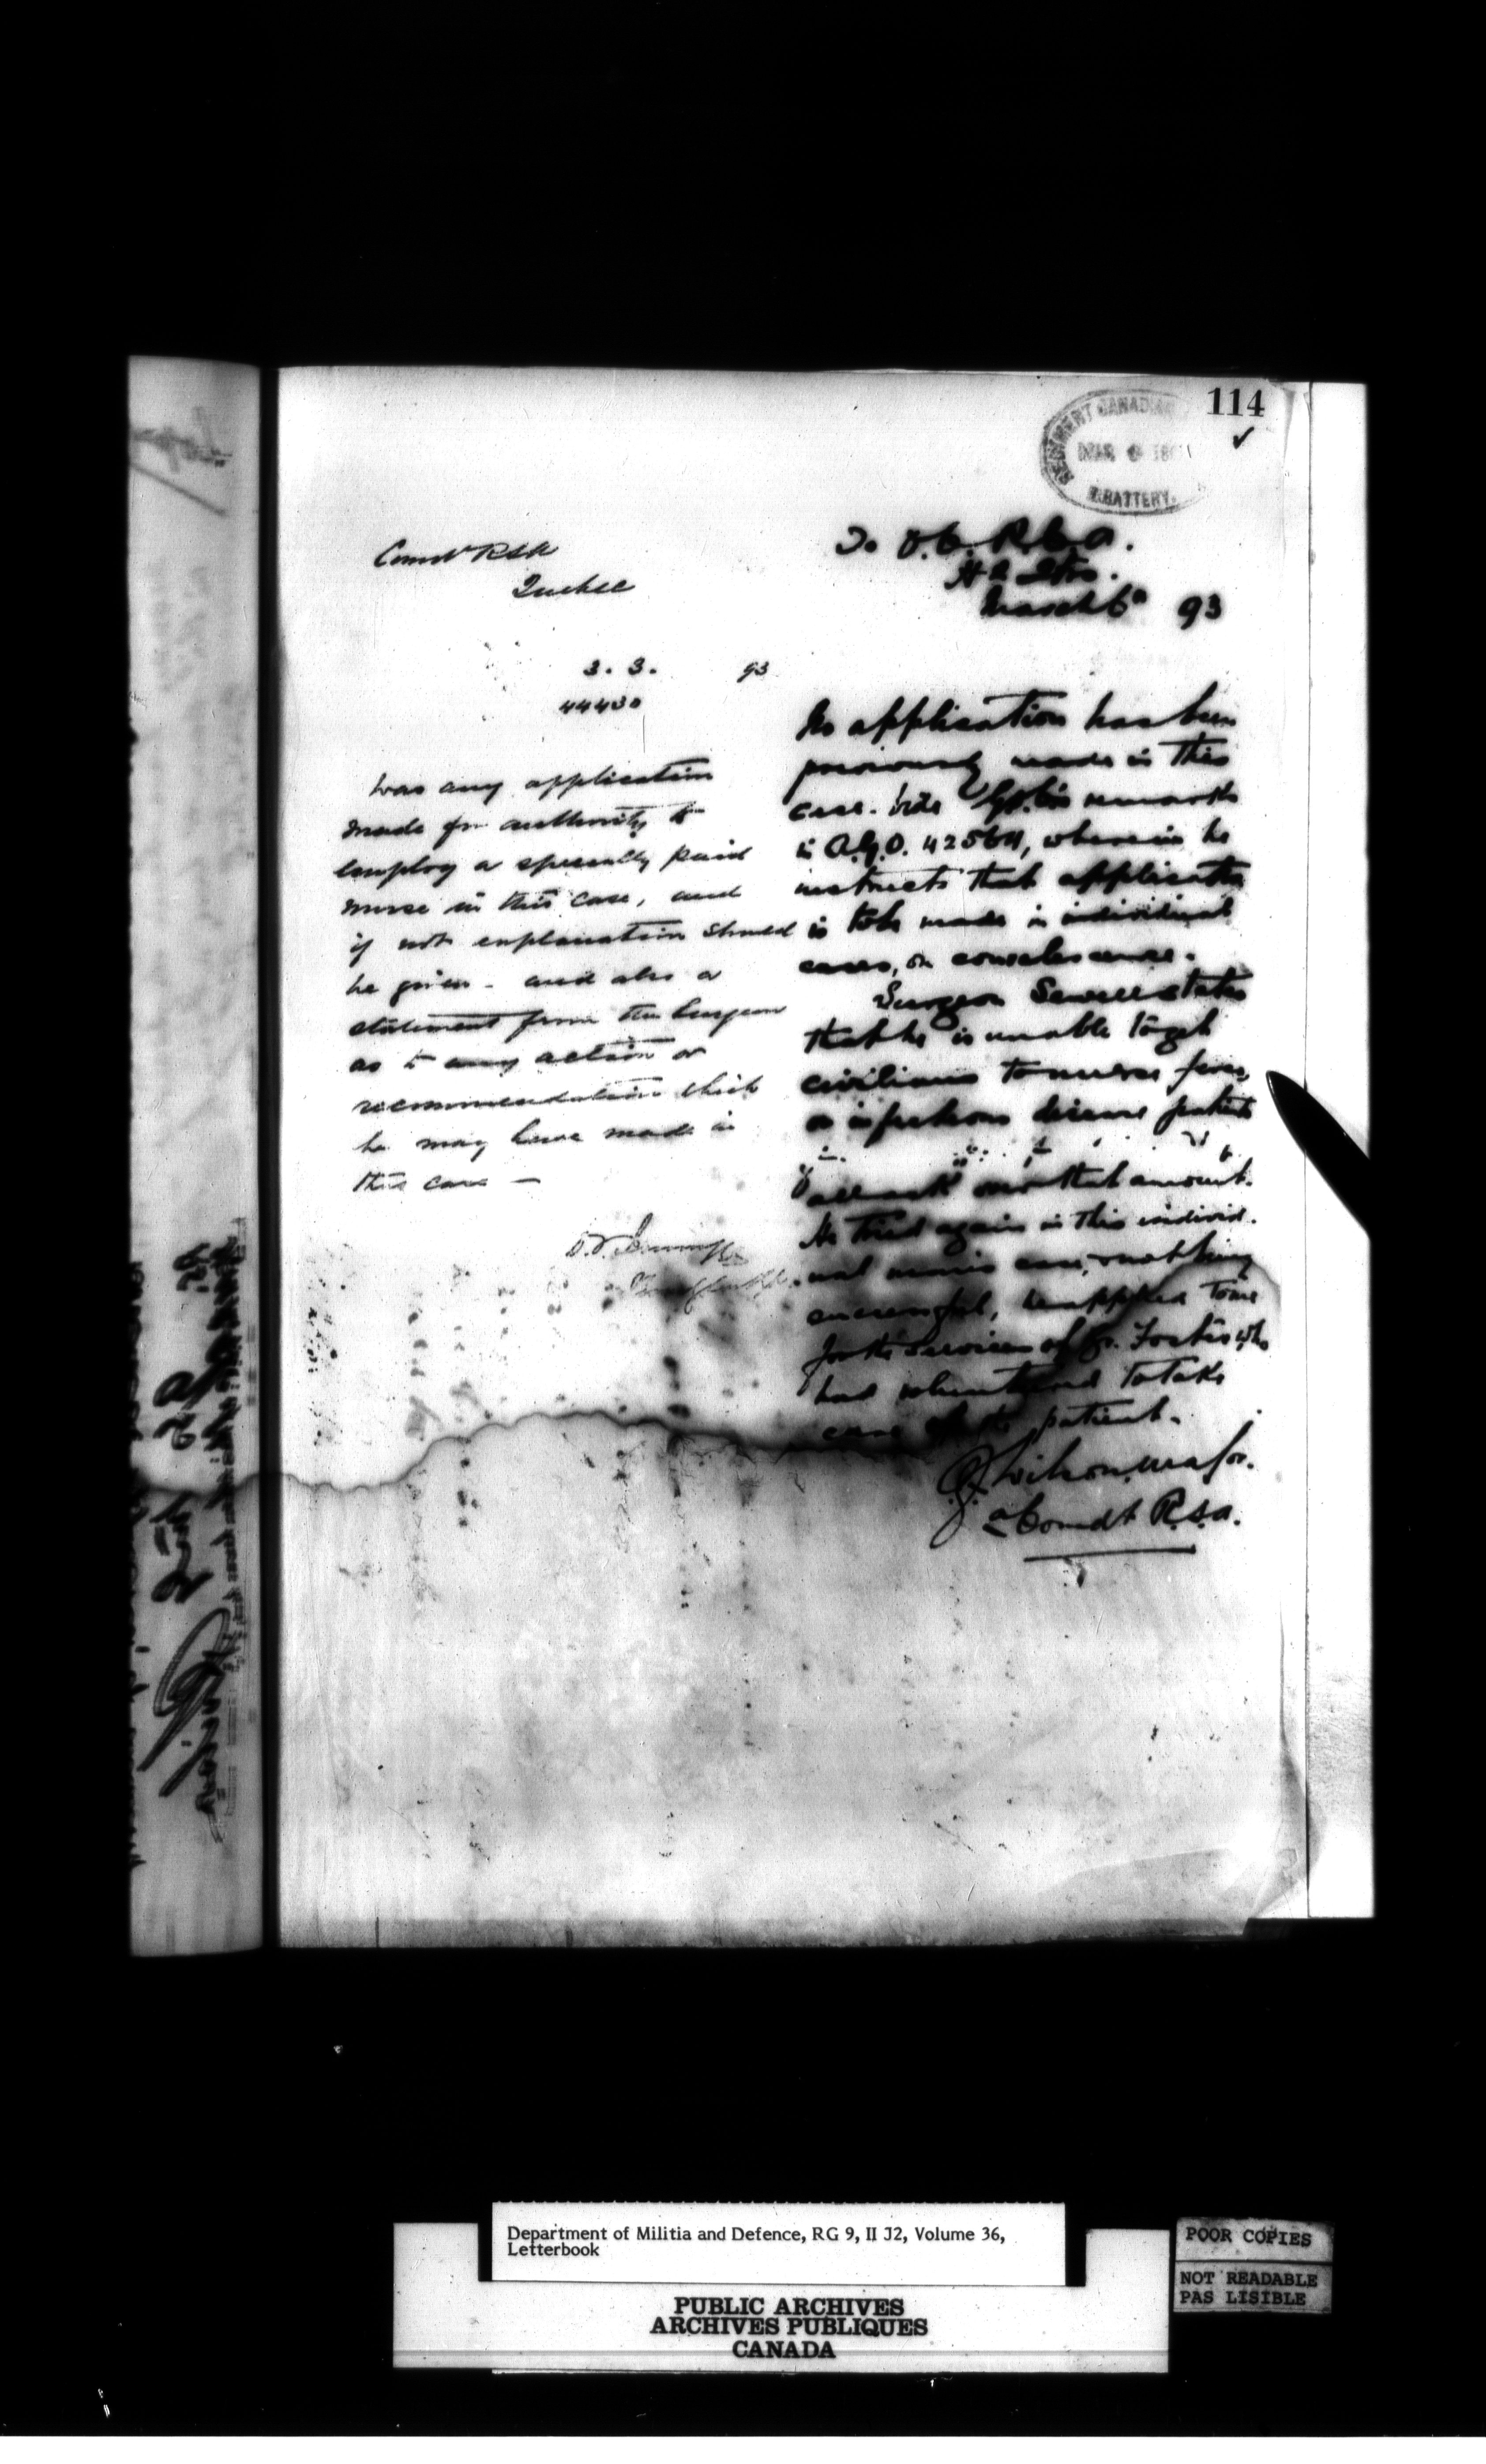 114
REGIMENT CANADIAN
MAR 6 18
BATTERY.
Comdt RSA
Quebec
3. 3. 93
44430
Was any application
made for authority to
employ a specially paid
nurse in this case, and
if not explanation should
be given - and also a
statement from the Surgeon
as to any action or
recommendation which
he may have made in
this case -
To O.C. R.C.A.
Hd Qtrs.
March 6th 93
No application has been
previously made in this
case. Vide remarks
in A.G.O. 42564, wherein he
instructs that application
is to be made in individual
cases, on convalescence.
Surgeon Sewell states
that he is unable to get
civilians to nurse fever,
or infectious disease patients
all ask more that amount.
He tried again in this individ-
ual case, & not being
successful, he applied to me
for the services of Gr. Foster who
had volunteered to take
care of the patient.
Wilson, Major.
a Comdt R.S.A.
Department of Militia and Defence, RG 9, II J2, Volume 36,
Letterbook
PUBLIC ARCHIVES
ARCHIVES PUBLIQUES
CANADA
POOR COPIES
NOT READABLE
PAS LISIBLE